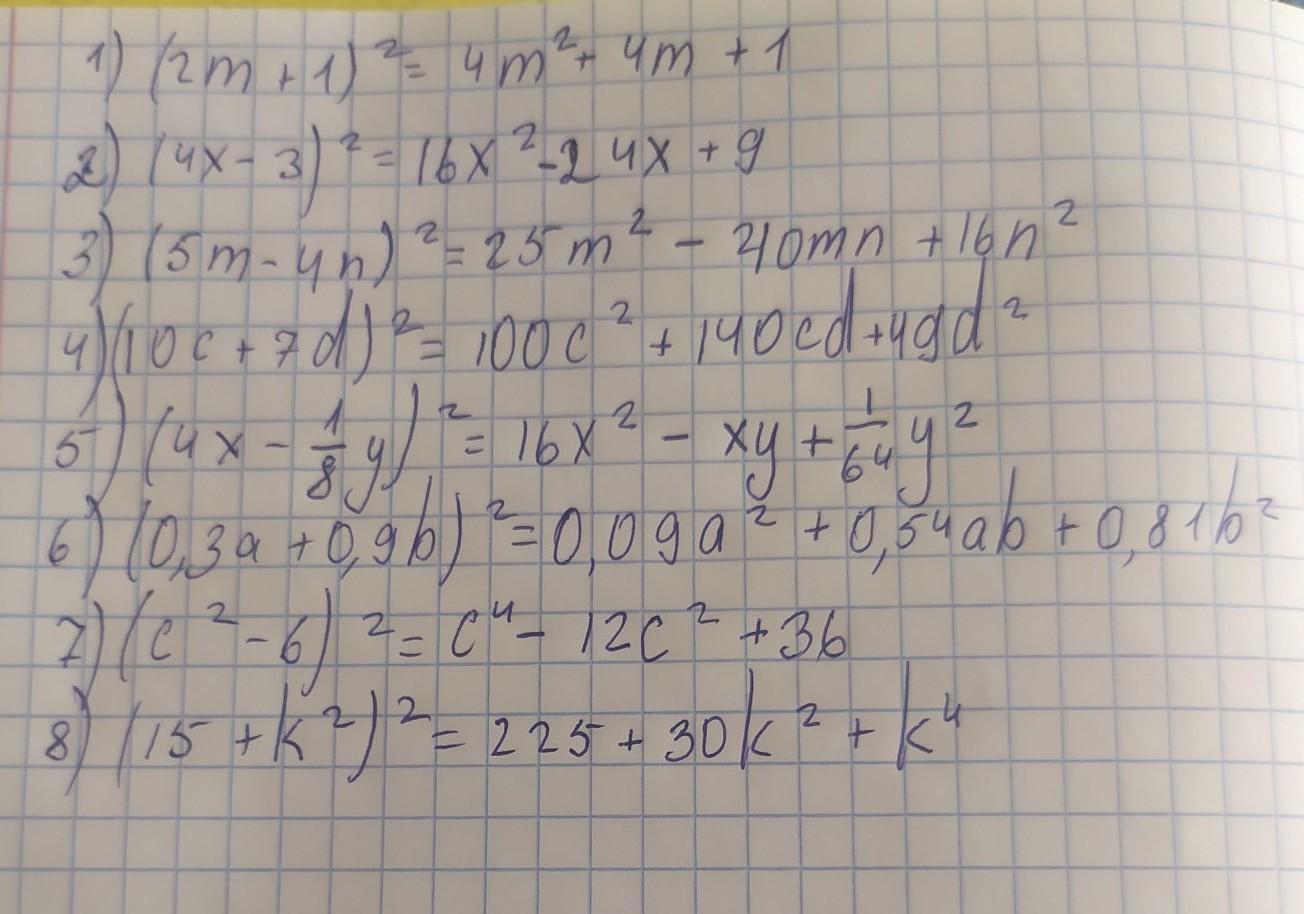 1) (2m + 1)² = 4m² + 4m + 1
2) (4x - 3)² = 16x² - 24x + 9
3) (5m - 4n)² = 25m² - 40mn + 16n²
4) (10c + 7d)² = 100c² + 140cd + 49d²
5) (4x - 1/8 y)² = 16x² - xy + 1/64 y²
6) (0,3a + 0,9b)² = 0,09a² + 0,54ab + 0,81b²
7) (c² - 6)² = c⁴ - 12c² + 36
8) (15 + k²)² = 225 + 30k² + k⁴